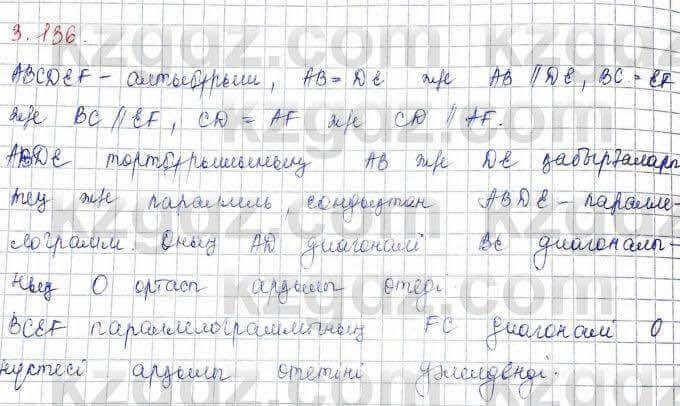 3.136.
ABCDEF – алтыбұрыш, AB = DE және AB // DE, BC = EF
және BC // EF, CD = AF және CD // AF.
ABDE төртбұрышының AB және DE қабырғалары
тең және параллель, сондықтан ABDE – паралле-
лограмм. Оның AD диагоналі BE диагоналы-
ның O ортасы арқылы өтеді.
BCEF параллелограммының FC диагоналі O
нүктесі арқылы өтетіні дәлелденді.